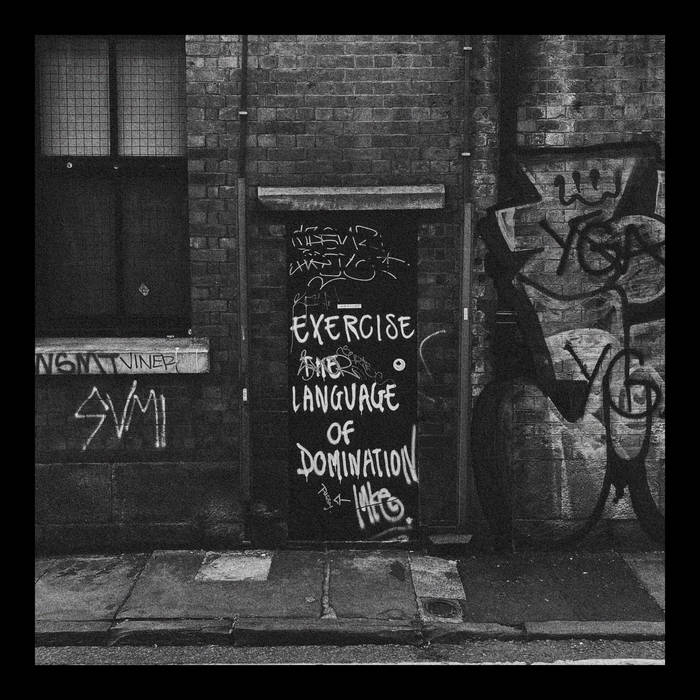 EXERCISE
THE
LANGUAGE
OF
DOMINATION
NSMT VINER
SVMI
YGA
YG